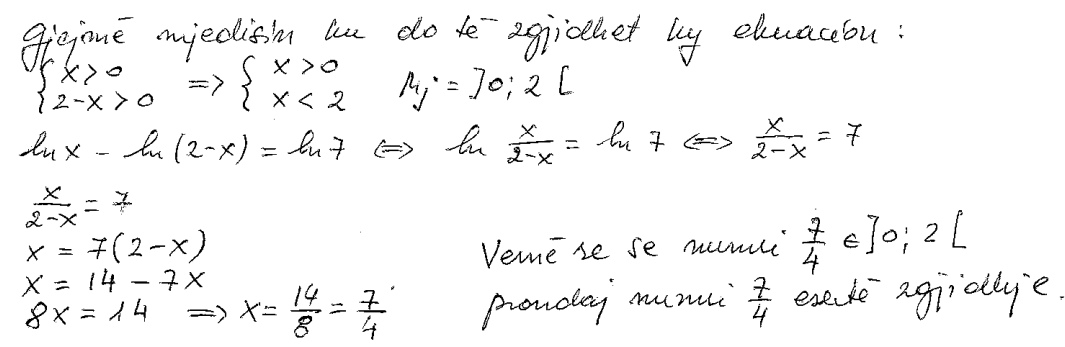 Gjejmë mjedisin ku do të zgjidhet ky ekuacion :
{ x > 0
{ 2-x > 0 => { x > 0
{ x < 2 Mj = ]0; 2 [
ln x - ln (2-x) = ln 7 <=> ln x/(2-x) = ln 7 <=> x/(2-x) = 7
x/(2-x) = 7
x = 7(2-x)
x = 14 - 7x
8x = 14 => x = 14/8 = 7/4
Vemë re se numri 7/4 ∈ ]0; 2 [
prandaj numri 7/4 është zgjidhje.